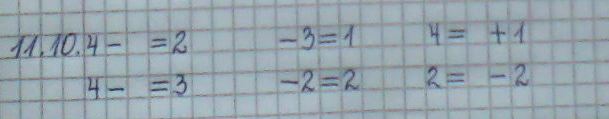 11.10. 4 -   = 2   - 3 = 1   4 =   + 1
4 -   = 3   - 2 = 2   2 =   - 2